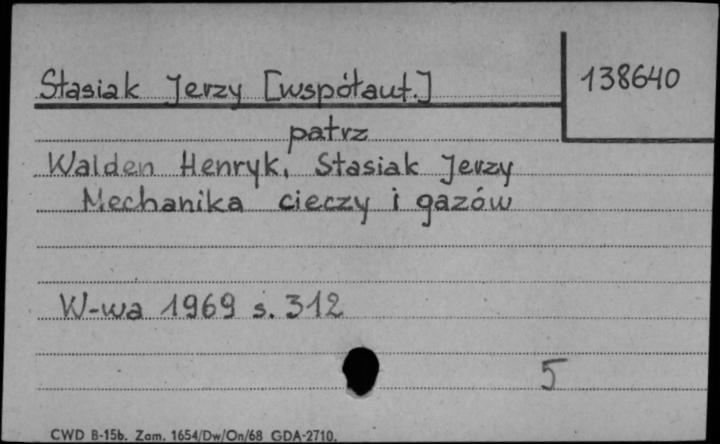 Stasiak Jerzy [współaut.]
138640
patrz
Walden Henryk, Stasiak Jerzy
Mechanika cieczy i gazów
W-wa 1969 s. 312
5
CWD B-15b. Zam. 1654/Dw/On/68 GDA-2710.